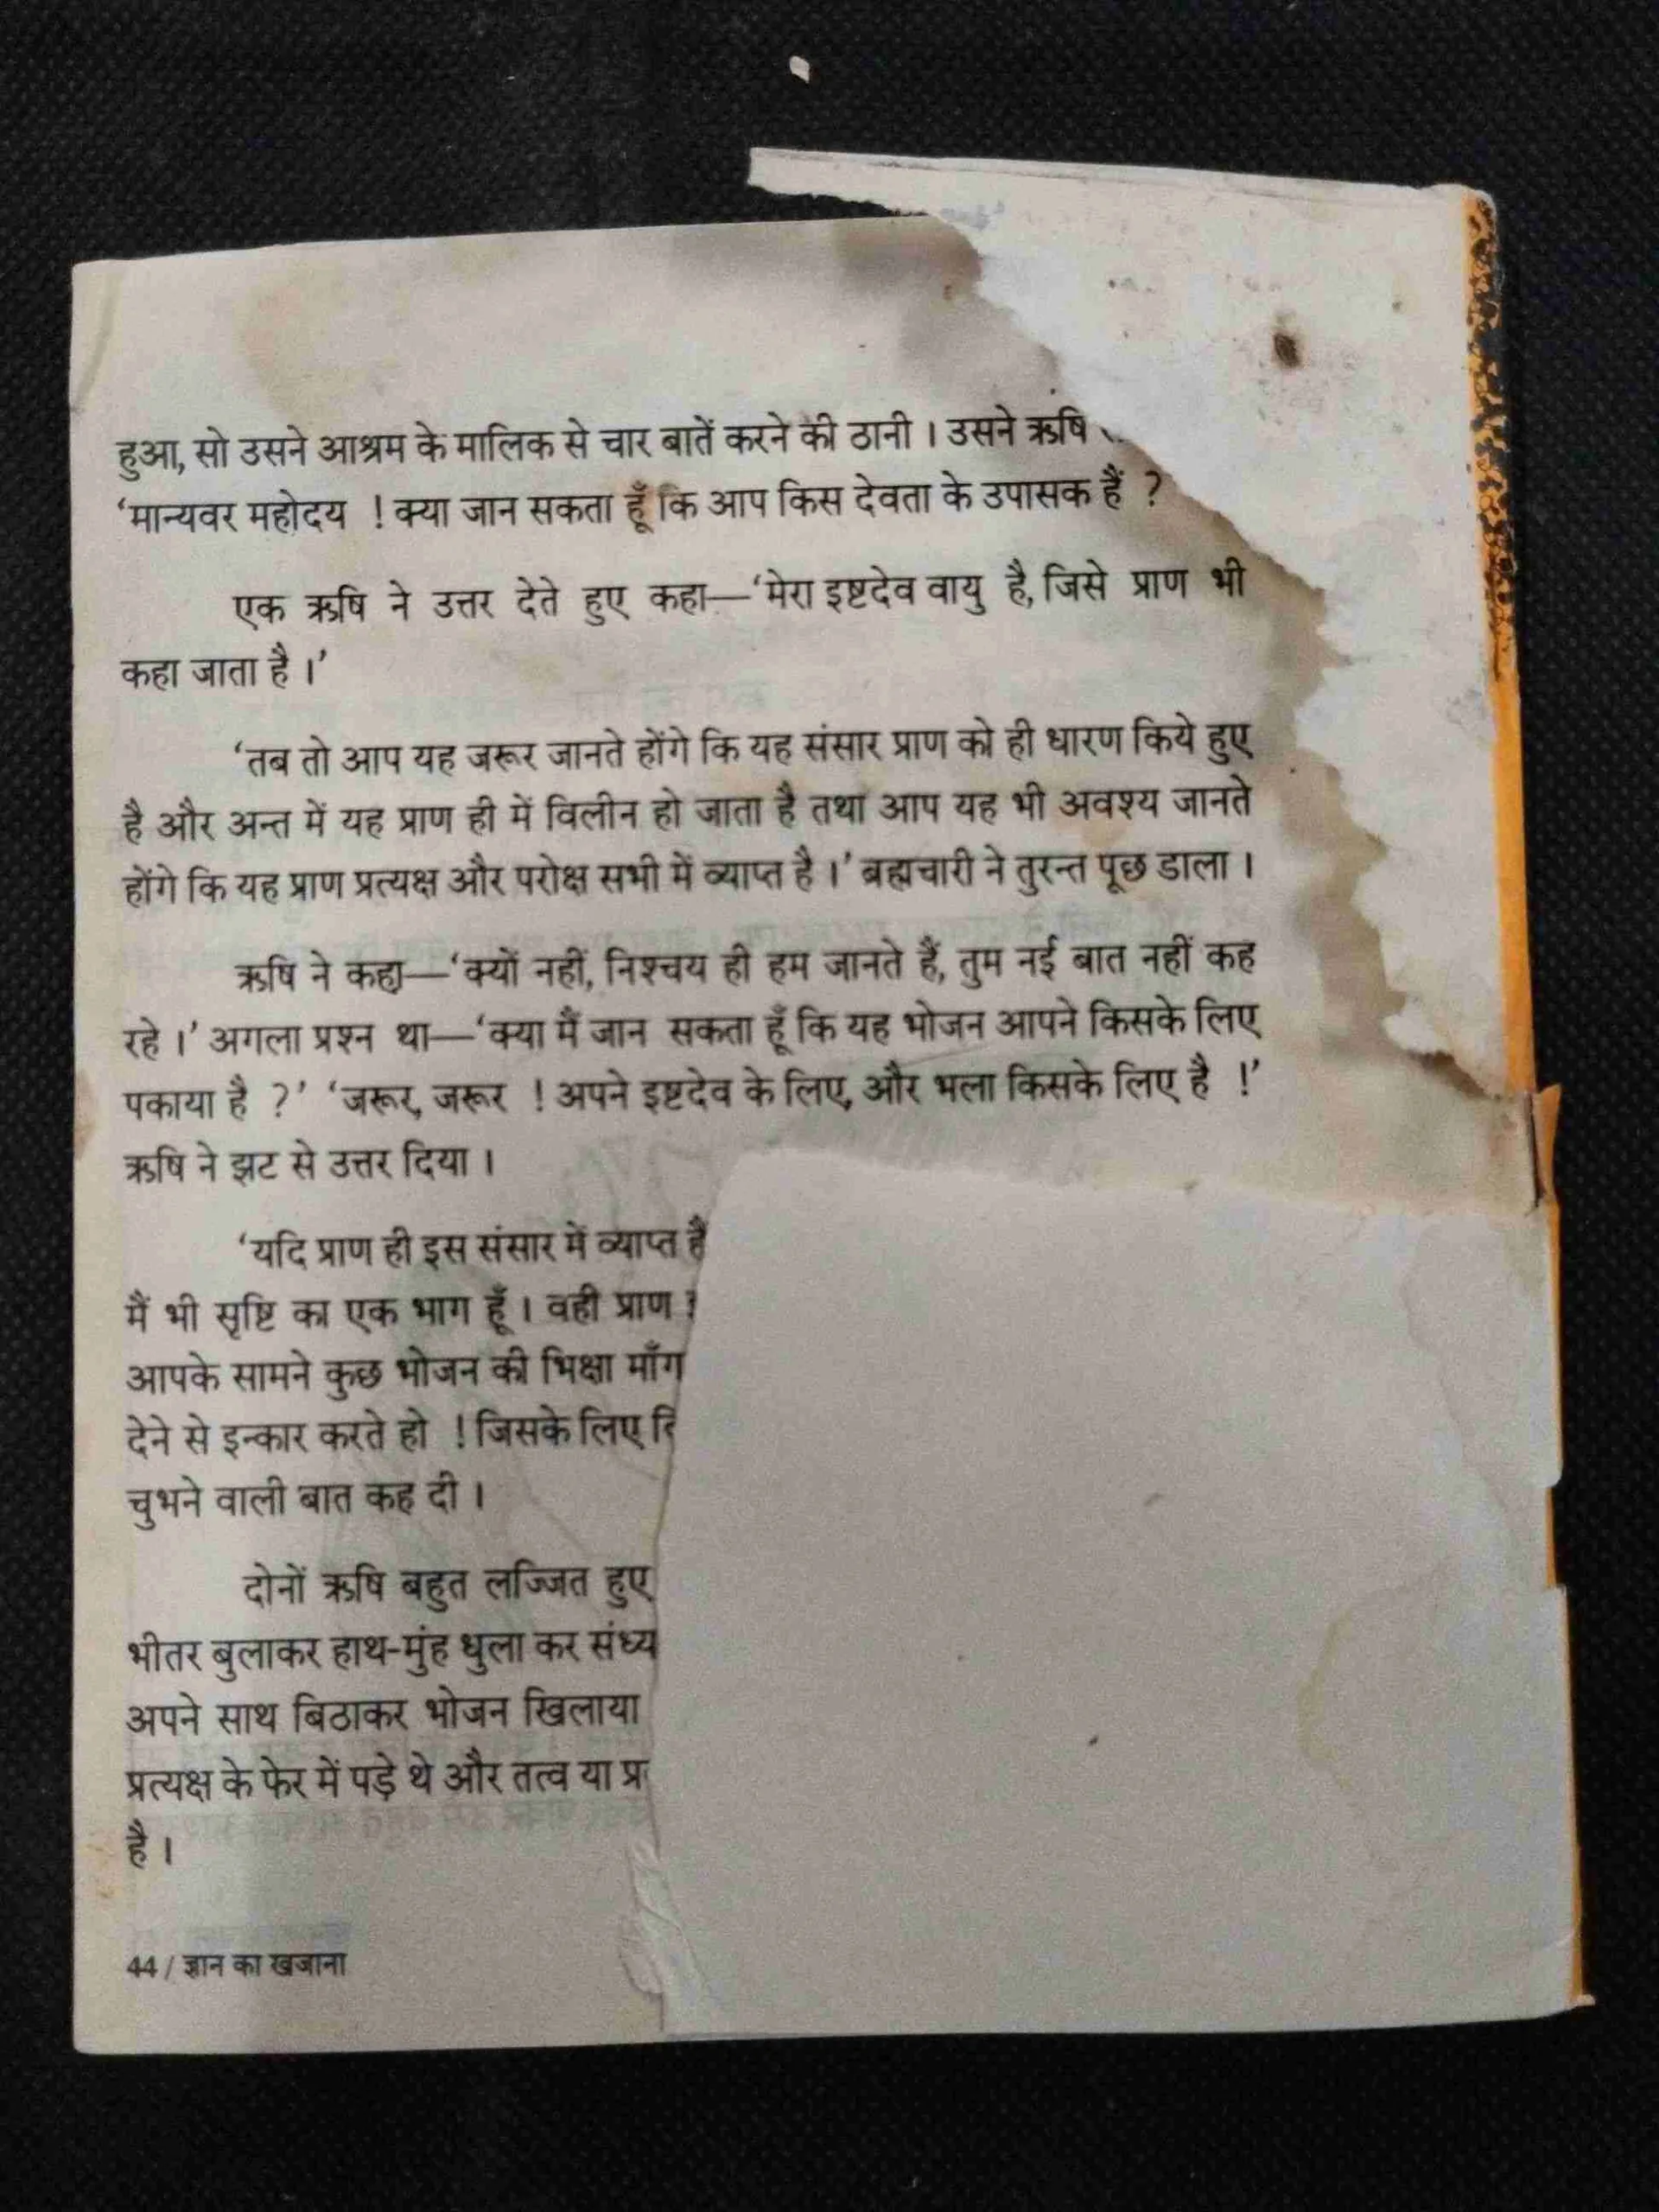 हुआ, सो उसने आश्रम के मालिक से चार बातें करने की ठानी । उसने ऋषि
‘मान्यवर महोदय ! क्या जान सकता हूँ कि आप किस देवता के उपासक हैं ?
एक ऋषि ने उत्तर देते हुए कहा—‘मेरा इष्टदेव वायु है, जिसे प्राण भी
कहा जाता है ।’
‘तब तो आप यह जरूर जानते होंगे कि यह संसार प्राण को ही धारण किये हुए
है और अन्त में यह प्राण ही में विलीन हो जाता है तथा आप यह भी अवश्य जानते
होंगे कि यह प्राण प्रत्यक्ष और परोक्ष सभी में व्याप्त है ।’ ब्रह्मचारी ने तुरन्त पूछ डाला ।
ऋषि ने कहा—‘क्यों नहीं, निश्चय ही हम जानते हैं, तुम नई बात नहीं कह
रहे ।’ अगला प्रश्न था—‘क्या मैं जान सकता हूँ कि यह भोजन आपने किसके लिए
पकाया है ?’ ‘जरूर, जरूर ! अपने इष्टदेव के लिए, और भला किसके लिए है !’
ऋषि ने झट से उत्तर दिया ।
‘यदि प्राण ही इस संसार में व्याप्त है
मैं भी सृष्टि का एक भाग हूँ । वही प्राण
आपके सामने कुछ भोजन की भिक्षा माँग
देने से इन्कार करते हो ! जिसके लिए
चुभने वाली बात कह दी ।
दोनों ऋषि बहुत लज्जित हुए
भीतर बुलाकर हाथ-मुंह धुला कर
अपने साथ बिठाकर भोजन खिलाया
प्रत्यक्ष के फेर में पड़े थे और तत्व या
है ।
44 / ज्ञान का खजाना